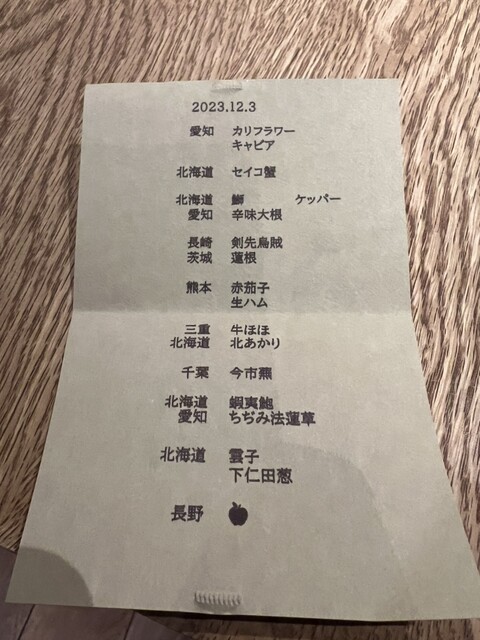 2023.12.3
愛知 カリフラワー
キャビア
北海道 セイコ蟹
北海道 鰤 ケッパー
愛知 辛味大根
長崎 剣先烏賊
茨城 蓮根
熊本 赤茄子
生ハム
三重 牛ほほ
北海道 北あかり
千葉 今市蕪
北海道 蝦夷鮑
愛知 ちぢみ法蓮草
北海道 雲子
下仁田葱
長野